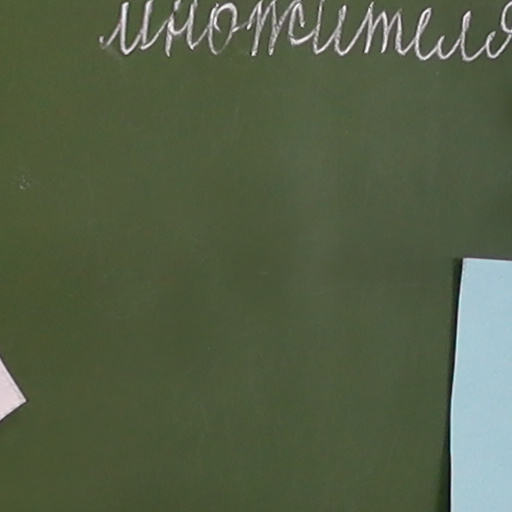 множителя